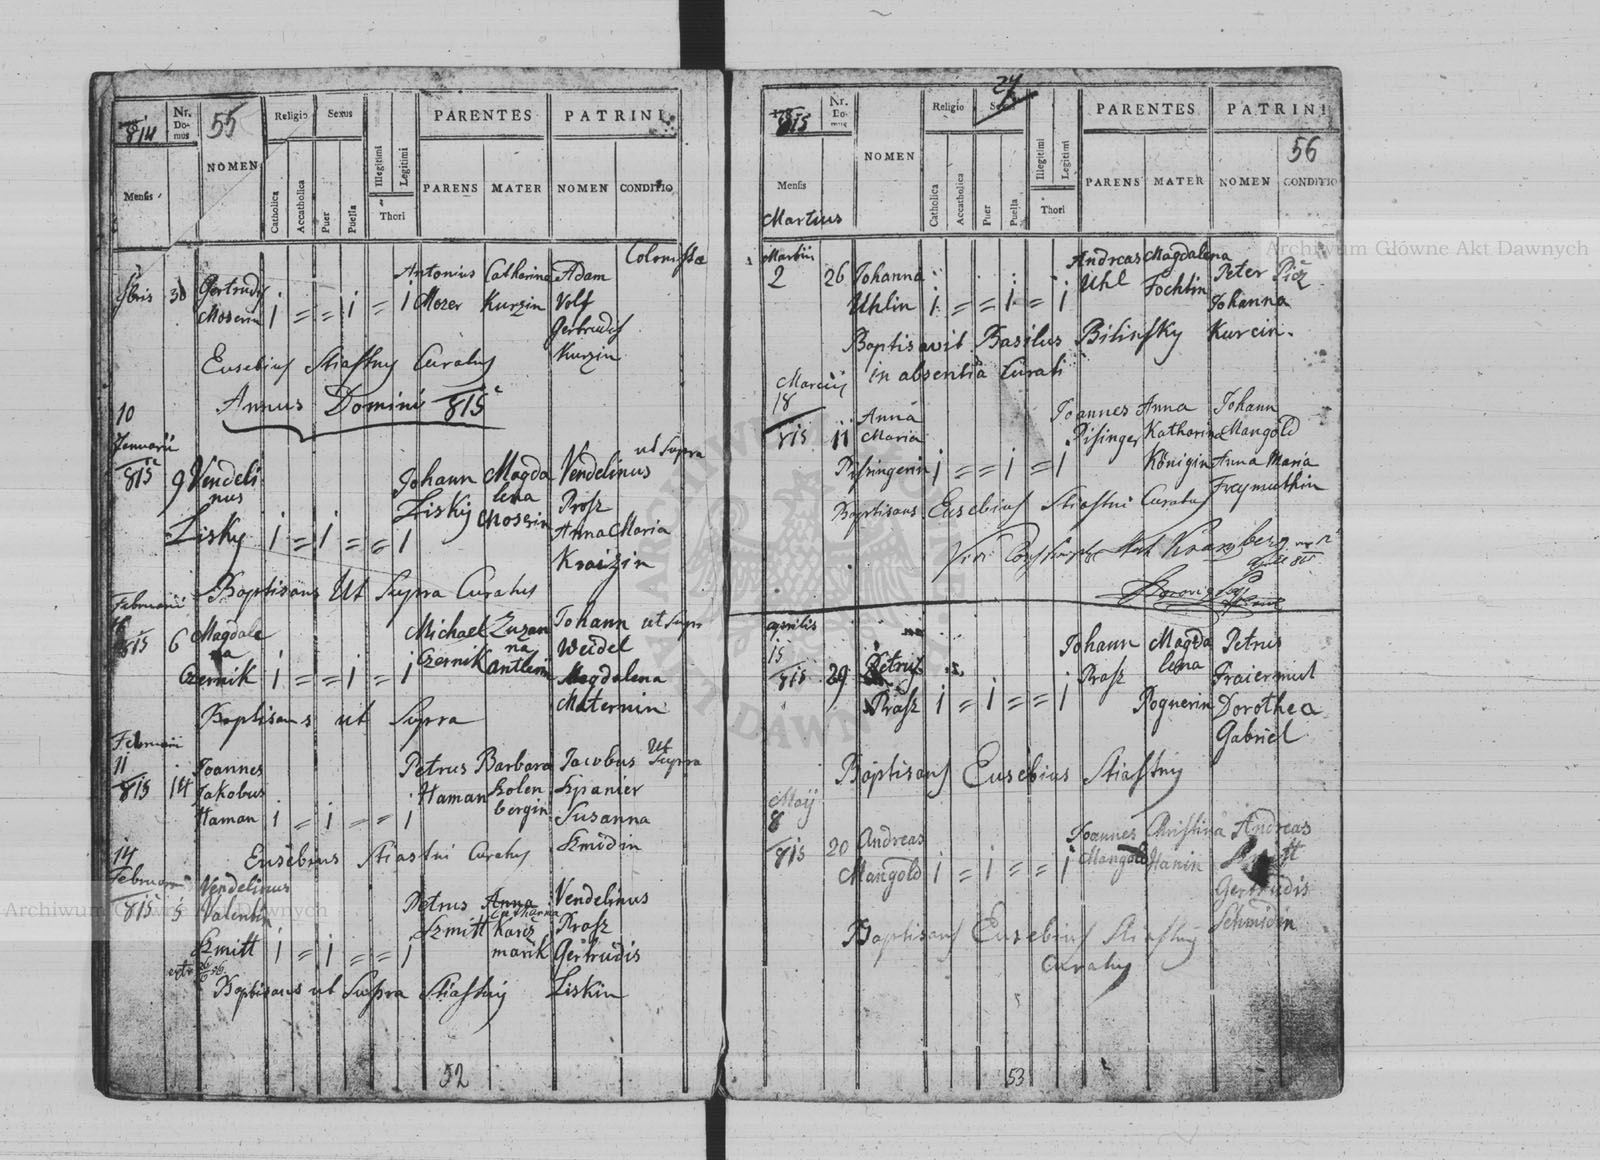 814
Nr.
Do-
mus
55
Religio
Sexus
PARENTES
PATRINI
Mensis
NOMEN
Catholica
Accatholica
Puer
Puella
Illegitimi
Legitimi
Thori
PARENS
MATER
NOMEN
CONDITIO
Colonistæ
30
Gertrudis
Moserin
1 = = 1 = 1
Antonius
Mozer
Catharina
Kurzin
Adam
Volf
Gertrudis
Kurzin
Eusebius Stiastny Curatus
Annus Domini 815
10
Januarii
815
9
Vendeli
nus
Lisky
1 = 1 = = 1
Johann
Liskij
Magda
lena
Moserin
Vendelinus
Prosz
Anna Maria
Kraizin
ut Supra
Baptisans Ut Supra Curatus
Februarii
815
6
Magdale
na
Czernik
1 = = 1 = 1
Michael
Czernik
Zuzan
na
Antlerin
Johann
Weidel
Magdalena
Maternin
ut Supr
Baptisans ut Supra
Februarii
11
815
14
Joannes
Jakobus
Haman
1 = 1 = = 1
Petrus
Haman
Barbara
Kolen
bergin
Jacobus
Szpanier
Susanna
Szmidin
Ut
Supra
Eusebius Stiastni Curatus
14
Februarii
815
5
Vendelinus
Valentin
Szmitt
1 = 1 = = 1
Petrus
Szmitt
Anna
Catharina
Karcz
marik
Vendelinus
Prosz
Gertrudis
Liskin
Baptisans ut Supra Stiastnij
52
24
815
Nr.
Do-
mus
Religio
Sexus
PARENTES
PATRINI
56
Mensis
NOMEN
Catholica
Accatholica
Puer
Puella
Illegitimi
Legitimi
Thori
PARENS
MATER
NOMEN
CONDITIO
Martius
Martii
2
26
Johanna
Uhlin
1 = = 1 = 1
Andreas
Uhl
Magdalena
Fochtin
Peter
Johanna
Kurcin
Baptisavit Basilus Bilinsky
in absentia Curati
Marcij
18
815
11
Anna
Maria
Pisingerin
1 = = 1 = 1
Joannes
Pisinger
Anna
Katharina
Königin
Johann
Mangold
Anna Maria
Freymuthin
Baptisans Eusebius Stiastni Curatus
Aprilis
15
815
29
Petrus
Prosz
1 = 1 = = 1
Johann
Prosz
Magda
lena
Poguerin
Petrus
Fraiermut
Dorothea
Gabriel
Baptisans Eusebius Stiastny
Maij
8
815
20
Andreas
Mangold
1 = 1 = = 1
Joannes
Mangold
Christina
Hanin
Andreas
Gertrudis
Schmidin
Baptisans Eusebius Stiastny
Curatus
53
Archiwum Główne Akt Dawnych